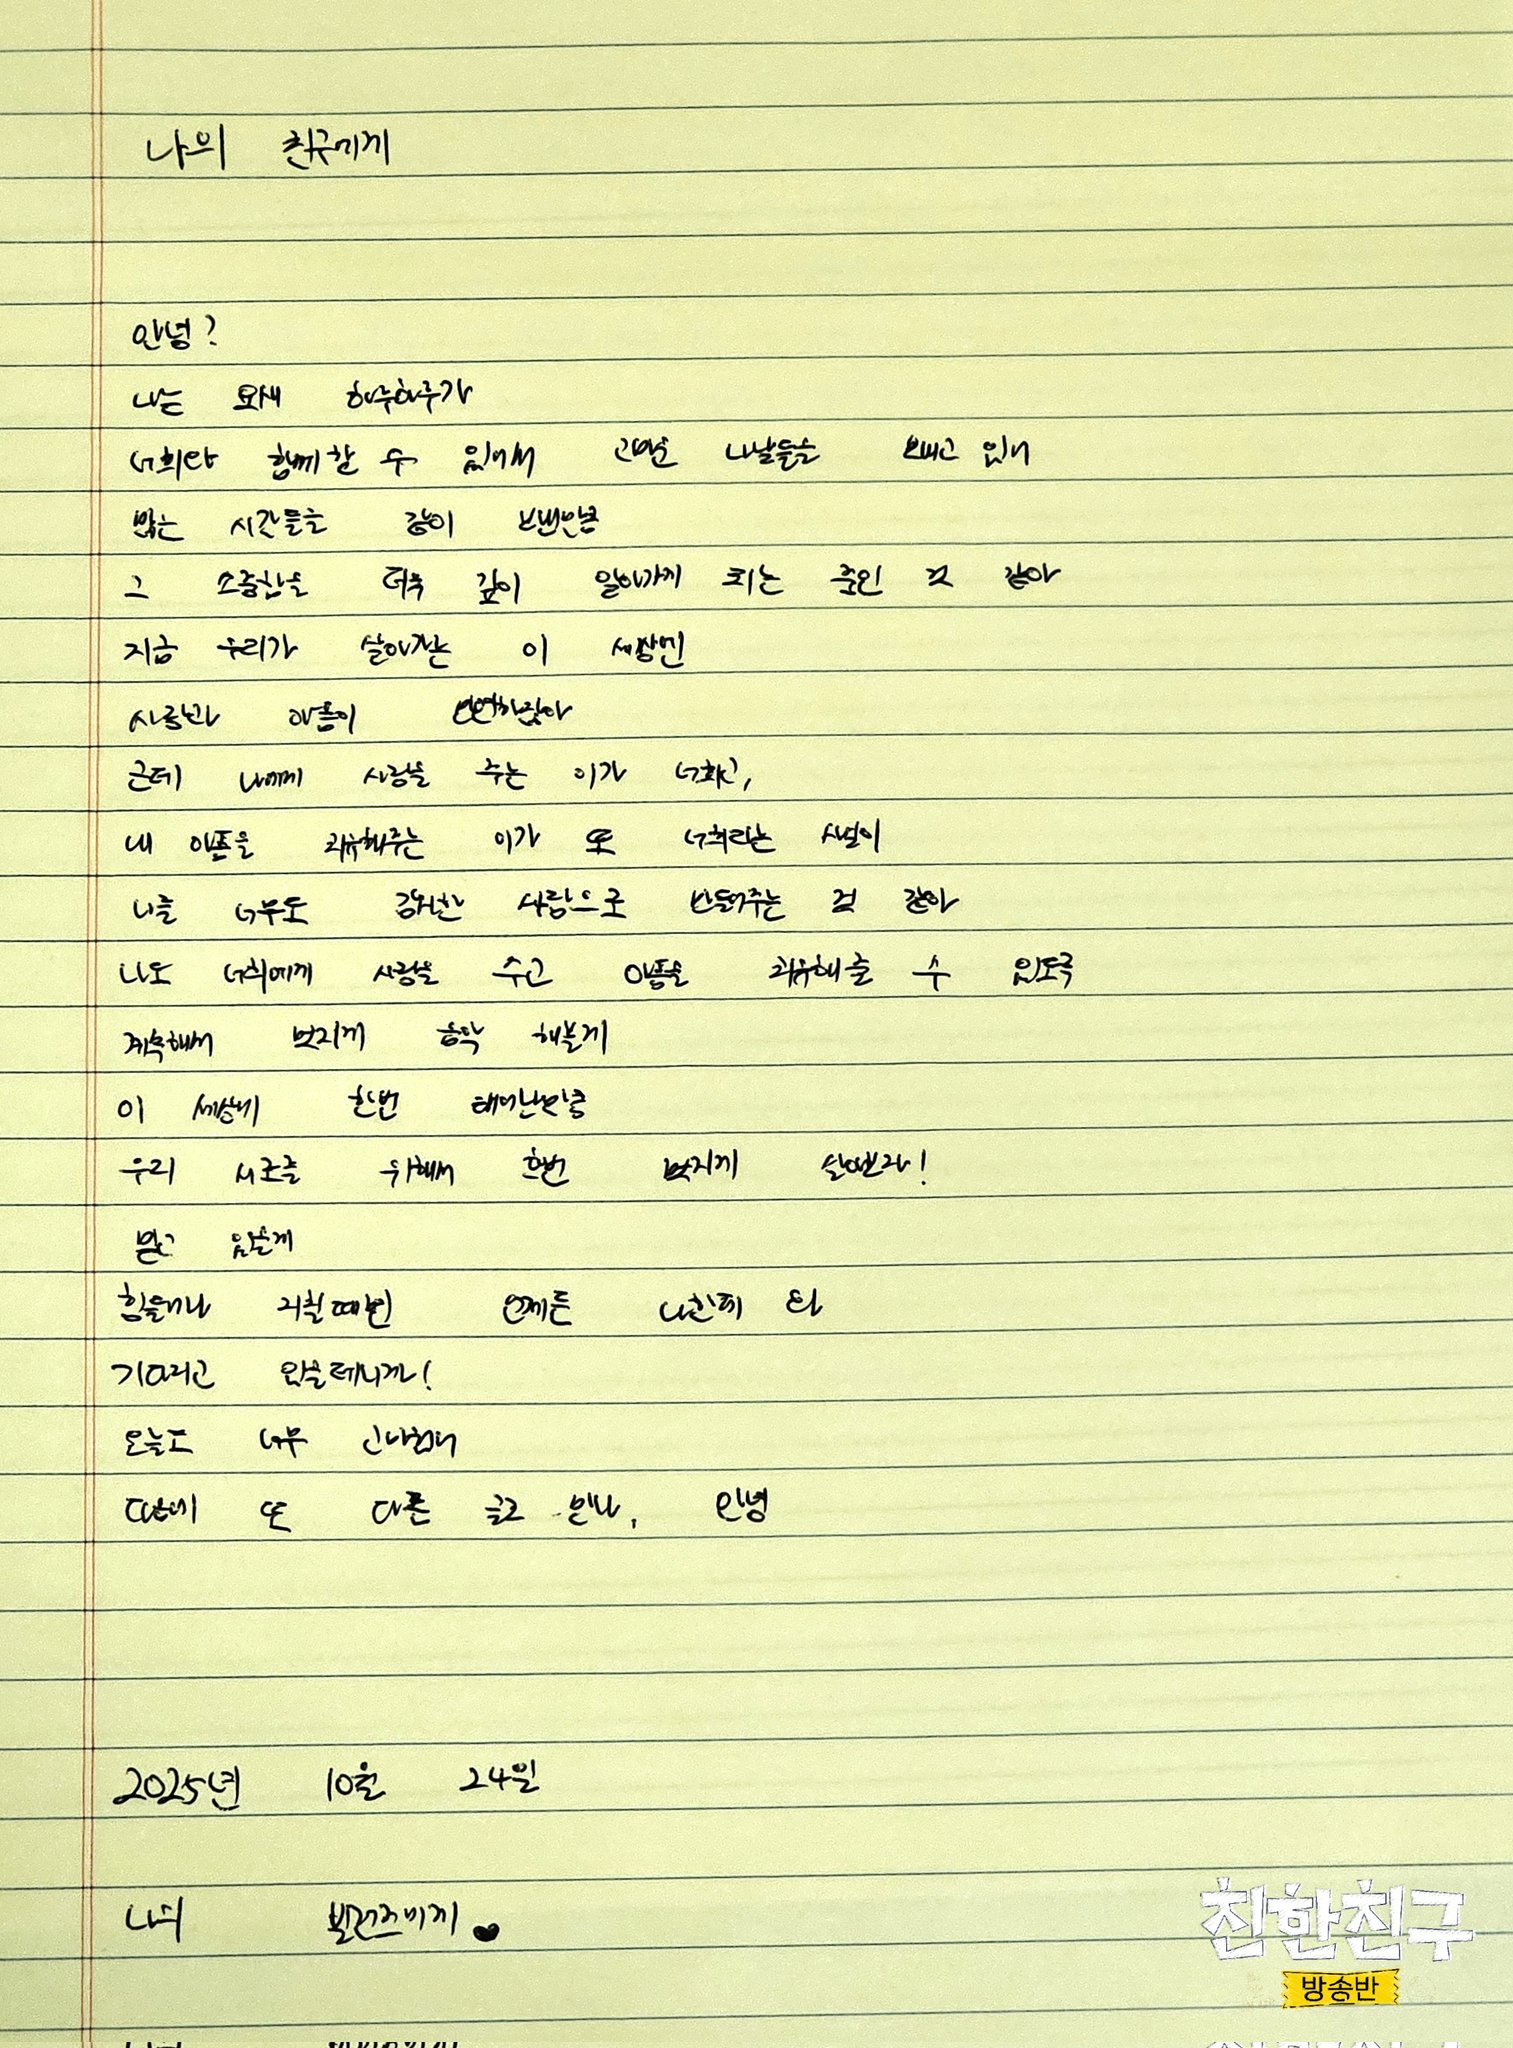 나의 친구에게
안녕?
나는 요새 하루하루가
너희랑 함께할 수 있어서 고마운 나날들을 보내고 있어
많은 시간들을 같이 보낸만큼
그 소중함을 더욱 깊이 알아가게 되는 중인 것 같아
지금 우리가 살아가는 이 세상엔
사랑과 아픔이 만연하잖아
근데 나에게 사랑을 주는 이가 너희고,
내 아픔을 치유해주는 이가 또 너희라는 사실이
나를 너무도 강한 사람으로 만들어주는 것 같아
나도 너희에게 사랑을 주고 아픔을 치유해줄 수 있도록
계속해서 멋지게 음악 해볼게
이 세상에 한번 태어난만큼
우리 서로를 위해서 한번 멋지게 살아보자!
믿고 있을게
힘들거나 지칠때면 언제든 나한테 와
기다리고 있을테니까!
오늘도 너무 고마웠어
다음에 또 다른 글로 만나, 안녕
2025년 10월 24일
나의 보러즈에게
친한친구
방송반